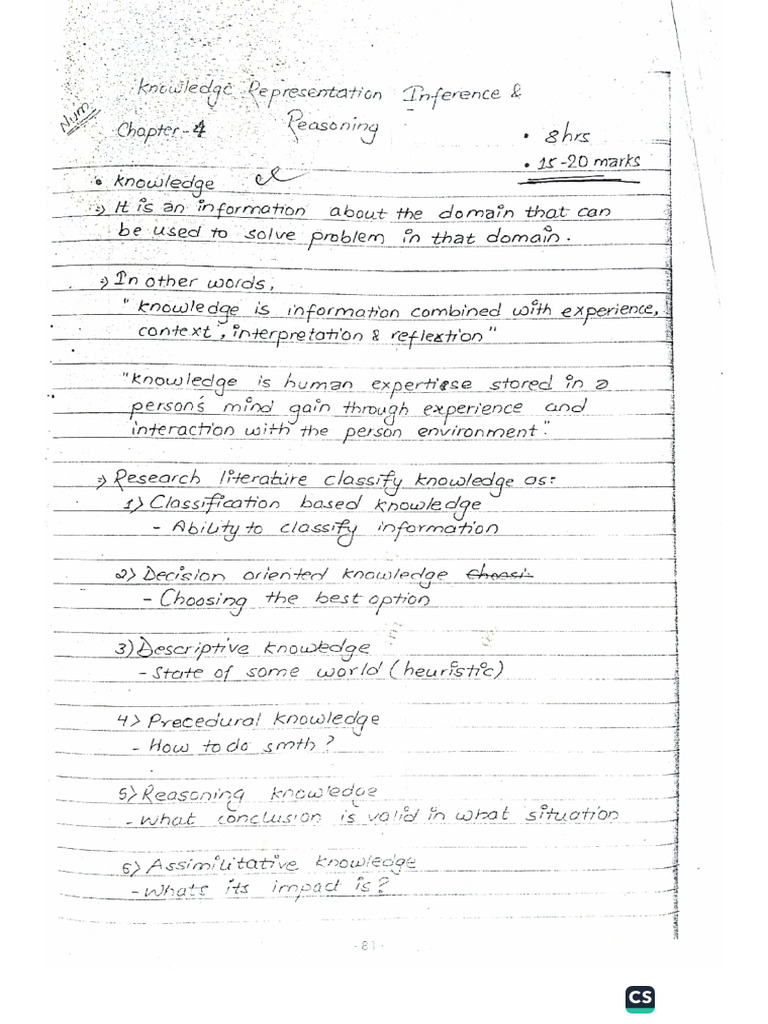 Knowledge Representation Inference &
Num
Chapter-4 Reasoning
• 8hrs
• 15-20 marks
• Knowledge
⇒ It is an information about the domain that can
be used to solve problem in that domain.
⇒ In other words,
"Knowledge is information combined with experience,
context, interpretation & reflextion"
"Knowledge is human expertiese stored in a
person's mind gain through experience and
interaction with the person environment."
⇒ Research literature classify knowledge as:
1) Classification based knowledge
- Ability to classify information
2) Decision oriented knowledge Choosi
- Choosing the best option
3) Descriptive knowledge
- State of some world (heuristic)
4) Precedural knowledge
- How to do smth?
5) Reasoning knowledge
- What conclusion is valid in what situation
6) Assimilitative knowledge
- Whats its impact is?
- 81 -
CS